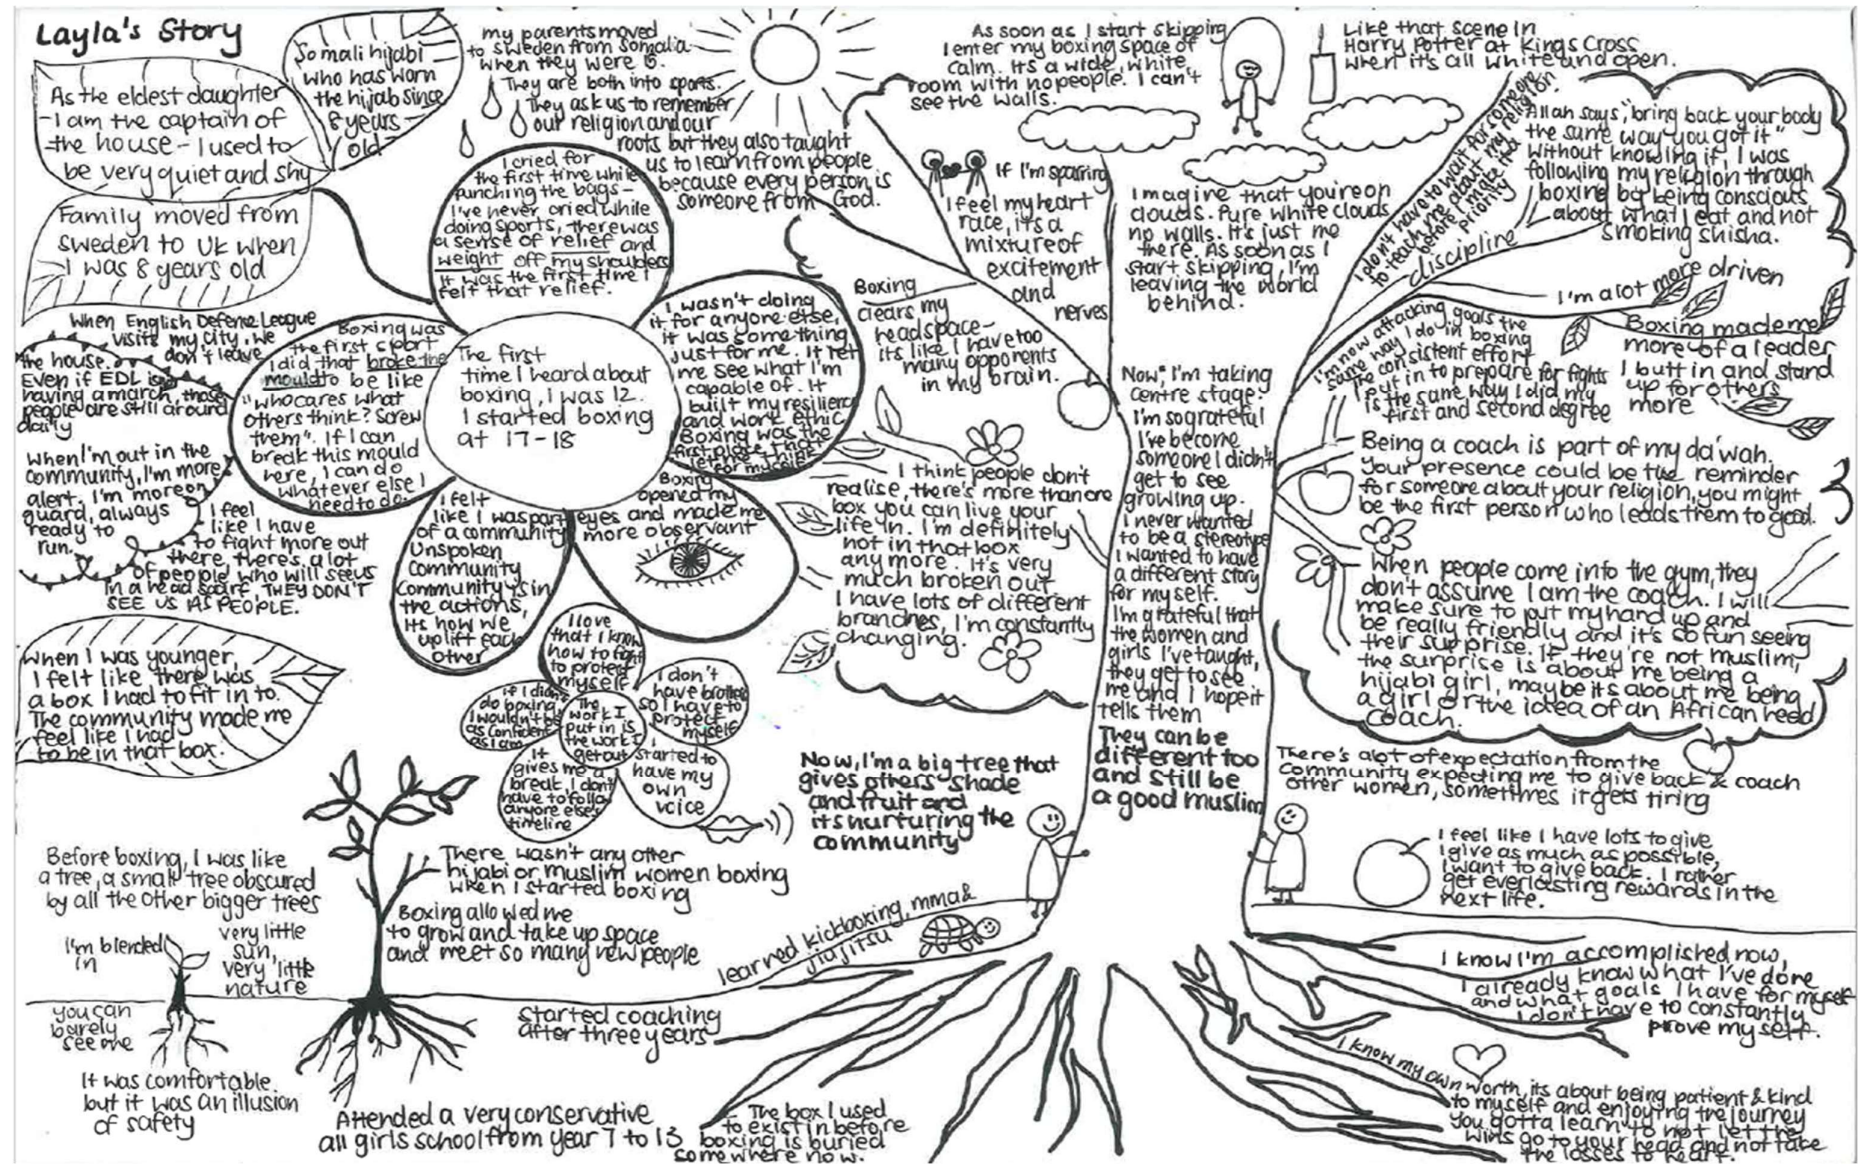 Layla's Story
As the eldest daughter
I am the captain of
the house - I used to
be very quiet and shy
Somali hijabi
who has worn
the hijab since
8 years
old
Family moved from
Sweden to UK when
I was 8 years old
my parents moved
to Sweden from Somalia
when they were
They are both into sports.
They ask us to remember
our religion and our
roots but they also taught
us to learn from people
because every person is
someone from God.
I cried for
the first time while
punching the bags -
I've never cried while
doing sports, there was
a sense of relief and
weight off my shoulders
It was the first time I
felt that relief.
When English Defense League
visits my city, we
don't leave
the house.
Even if EDL isn't
having a march, those
people are still around
daily
When I'm out in the
community, I'm more
alert. I'm more on
guard, always
ready to
run.
I feel
like I have
to fight more out
there, theres a lot
of people who will see us
in a head scarf, THEY DON'T
SEE US AS PEOPLE.
Boxing was
the first sport
I did that broke the
mould to be like
"who cares what
others think? Screw
them". If I can
break this mould
here, I can do
whatever else I
need to do.
The first
time I heard about
boxing, I was 12.
I started boxing
at 17-18
I wasn't doing
it for anyone else,
it was something
just for me. It let
me see what I'm
capable of. It
built my resilience
and work ethic
Boxing was the
first place that
let me think
for myself
Boxing
opened my
eyes and made me
more observant
I felt
like I was part
of a community
Unspoken
Community
Community is in
the actions,
Its how we
uplift each
other
When I was younger,
I felt like there was
a box I had to fit in to.
The community made me
feel like I had
to be in that box.
I love
that I know
how to fight
to protect
myself
I don't
have brothers
so I have to
protect
myself
if I didn't
do boxing,
I wouldn't be
as confident
as I am
The
work I
put in is
the work I
get out
It
gives me a
break, I don't
have to follow
anyone else's
timeline
I started to
have my
own
voice
Before boxing, I was like
a tree, a small tree obscured
by all the other bigger trees
I'm blended
in
very little
sun,
very little
nature
you can
barely
see me
It was comfortable
but it was an illusion
of safety
There wasn't any other
hijabi or muslim women boxing
when I started boxing
Boxing allowed me
to grow and take up space
and meet so many new people
Attended a very conservative
all girls school from year 7 to 13
learned kickboxing, mma &
jiujitsu
Started coaching
after three years
The box I used
to exist in before
boxing is buried
somewhere now.
As soon as I start skipping
I enter my boxing space of
calm. Its a wide, white,
room with no people. I can't
see the walls.
Like that scene in
Harry Potter at Kings Cross
when it's all white and open.
If I'm sparring
I feel my heart
race, its a
mixture of
excitement
and
nerves
I imagine that you're on
clouds. Pure white clouds
no walls. It's just me
there. As soon as I
start skipping, I'm
leaving the world
behind.
Boxing
clears my
headspace -
its like I have too
many opponents
in my brain.
I think people don't
realise, there's more than one
box you can live your
life in. I'm definitely
not in that box
any more. It's very
much broken out
I have lots of different
branches, I'm constantly
changing.
Now, I'm a big tree that
gives others shade
and fruit and
its nurturing the
community
Now, I'm taking
centre stage.
I'm so grateful
I've become
someone I didn't
get to see
growing up.
I never wanted
to be a stereotype
I wanted to have
a different story
for myself.
I'm grateful that
the women and
girls I've taught,
they get to see
me and I hope it
tells them
They can be
different too
and still be
a good muslim
I don't have to wait for someone
to teach me about my religion
before I make it a
priority
discipline
Allah says, "bring back your body
the same way you got it"
Without knowing it, I was
following my religion through
boxing by being conscious
about what I eat and not
smoking shisha.
I'm a lot more driven
I'm now attacking goals the
same way I do in boxing
The consistent effort
I put in to prepare for fights
is the same way I did my
first and second degree
Boxing made me
more of a leader
I butt in and stand
up for others
more
Being a coach is part of my da'wah.
Your presence could be the reminder
for someone about your religion, you might
be the first person who leads them to good.
When people come into the gym, they
don't assume I am the coach. I will
make sure to put my hand up and
be really friendly and it's so fun seeing
their surprise. If they're not muslim,
the surprise is about me being a
hijabi girl, maybe its about me being
a girl or the idea of an African head
coach.
There's a lot of expectation from the
community expecting me to give back & coach
other women, sometimes it gets tiring
I feel like I have lots to give
I give as much as possible,
I want to give back. I rather
get everlasting rewards in the
next life.
I know I'm accomplished now,
I already know what I've done
and what goals I have for myself
I don't have to constantly
prove myself.
I know my own worth, its about being patient & kind
to myself and enjoying the journey
You gotta learn to not let the
wins go to your head and not take
the losses to heart.